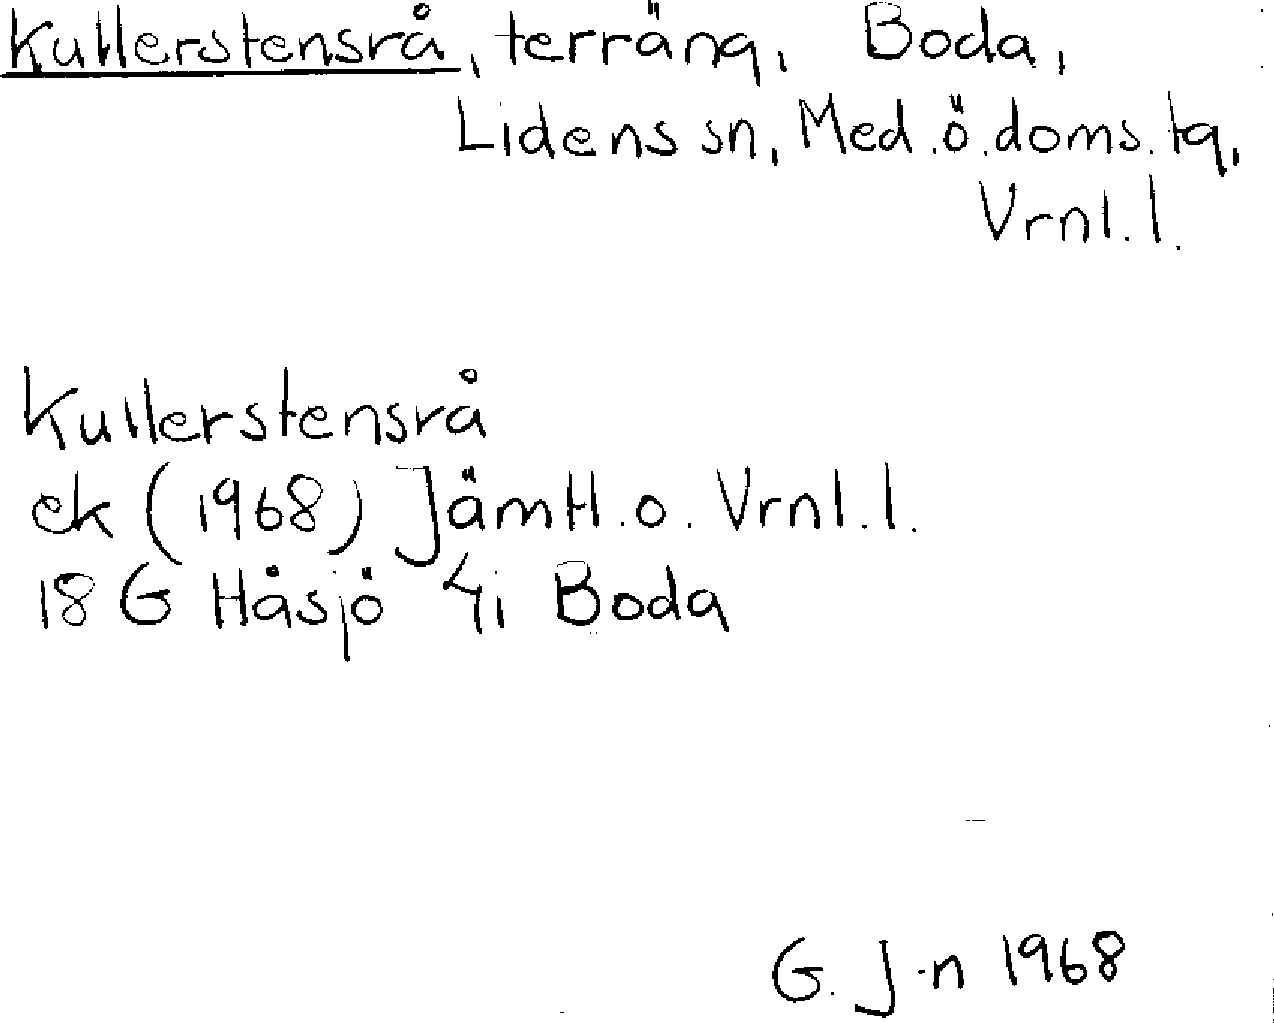 Kullerstensrå, terräng, Boda,
Lidens sn, Med.ö.doms.tg,
Vrnl.l.
Kullerstensrå
ek (1968) Jämtl.o. Vrnl.l.
18 G Håsjö 4i Boda
G. J-n 1968